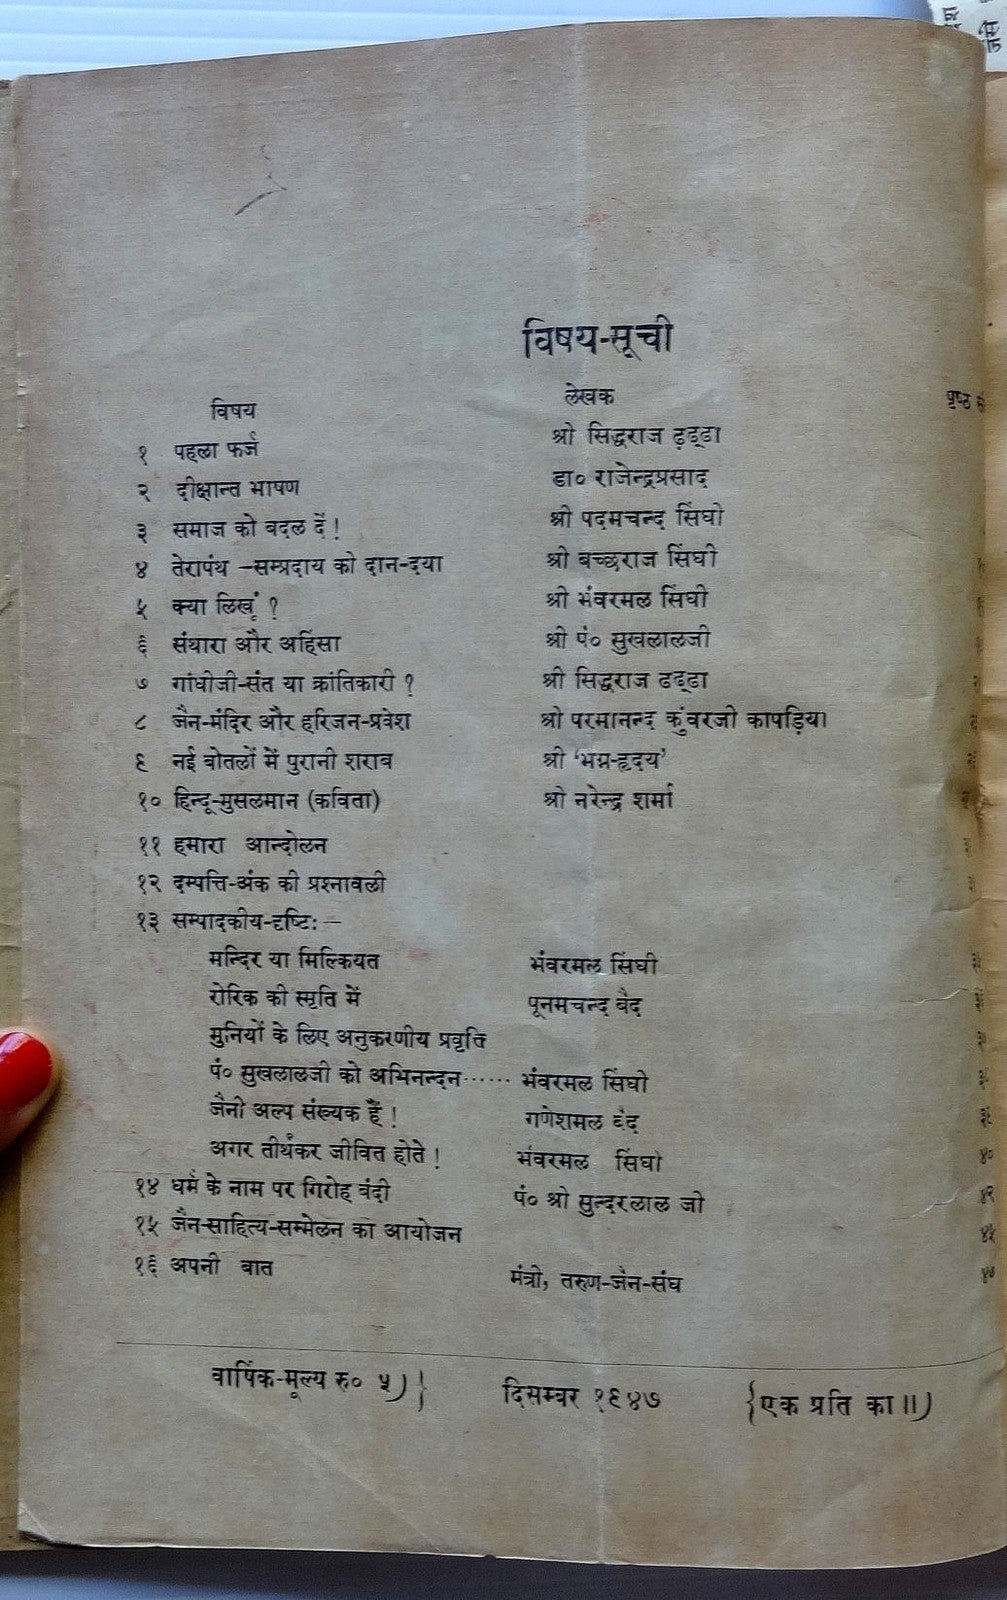 विषय-सूची
विषय लेखक पृष्ठ
१ पहला फर्ज श्री सिद्धराज ढ़ड्ढा
२ दीक्षान्त भाषण डा० राजेन्द्रप्रसाद
३ समाज को बदल दें ! श्री पदमचन्द सिंघी
४ तेरापंथ –सम्प्रदाय को दान-दया श्री बच्छराज सिंघी
५ क्या लिखूं ? श्री भंवरमल सिंघी
६ संथारा और अहिंसा श्री पं० सुखलालजी
७ गांधीजी-संत या क्रांतिकारी ? श्री सिद्धराज ढड्ढा
८ जैन-मंदिर और हरिजन-प्रवेश श्री परमानन्द कुंवरजी कापड़िया
९ नई बोतलों में पुरानी शराब श्री ‘भग्न-हृदय’
१० हिन्दू-मुसलमान (कविता) श्री नरेन्द्र शर्मा
११ हमारा आन्दोलन
१२ दम्पत्ति-अंक की प्रश्नावली
१३ सम्पादकीय-दृष्टिः –
मन्दिर या मिल्कियत भंवरमल सिंघी
रोरिक की स्मृति में पूनमचन्द बैद
मुनियों के लिए अनुकरणीय प्रवृत्ति
पं० सुखलालजी को अभिनन्दन...... भंवरमल सिंघी
जैनी अल्प संख्यक हैं ! गणेशमल बैद
अगर तीर्थंकर जीवित होते ! भंवरमल सिंघी ४०
१४ धर्म के नाम पर गिरोह बंदी पं० श्री सुन्दरलाल जी ४२
१५ जैन-साहित्य-सम्मेलन का आयोजन ४५
१६ अपनी बात मंत्री, तरुण-जैन-संघ ४७
वार्षिक-मूल्य रु० ५)} दिसम्बर १९४७ {एक प्रति का॥)